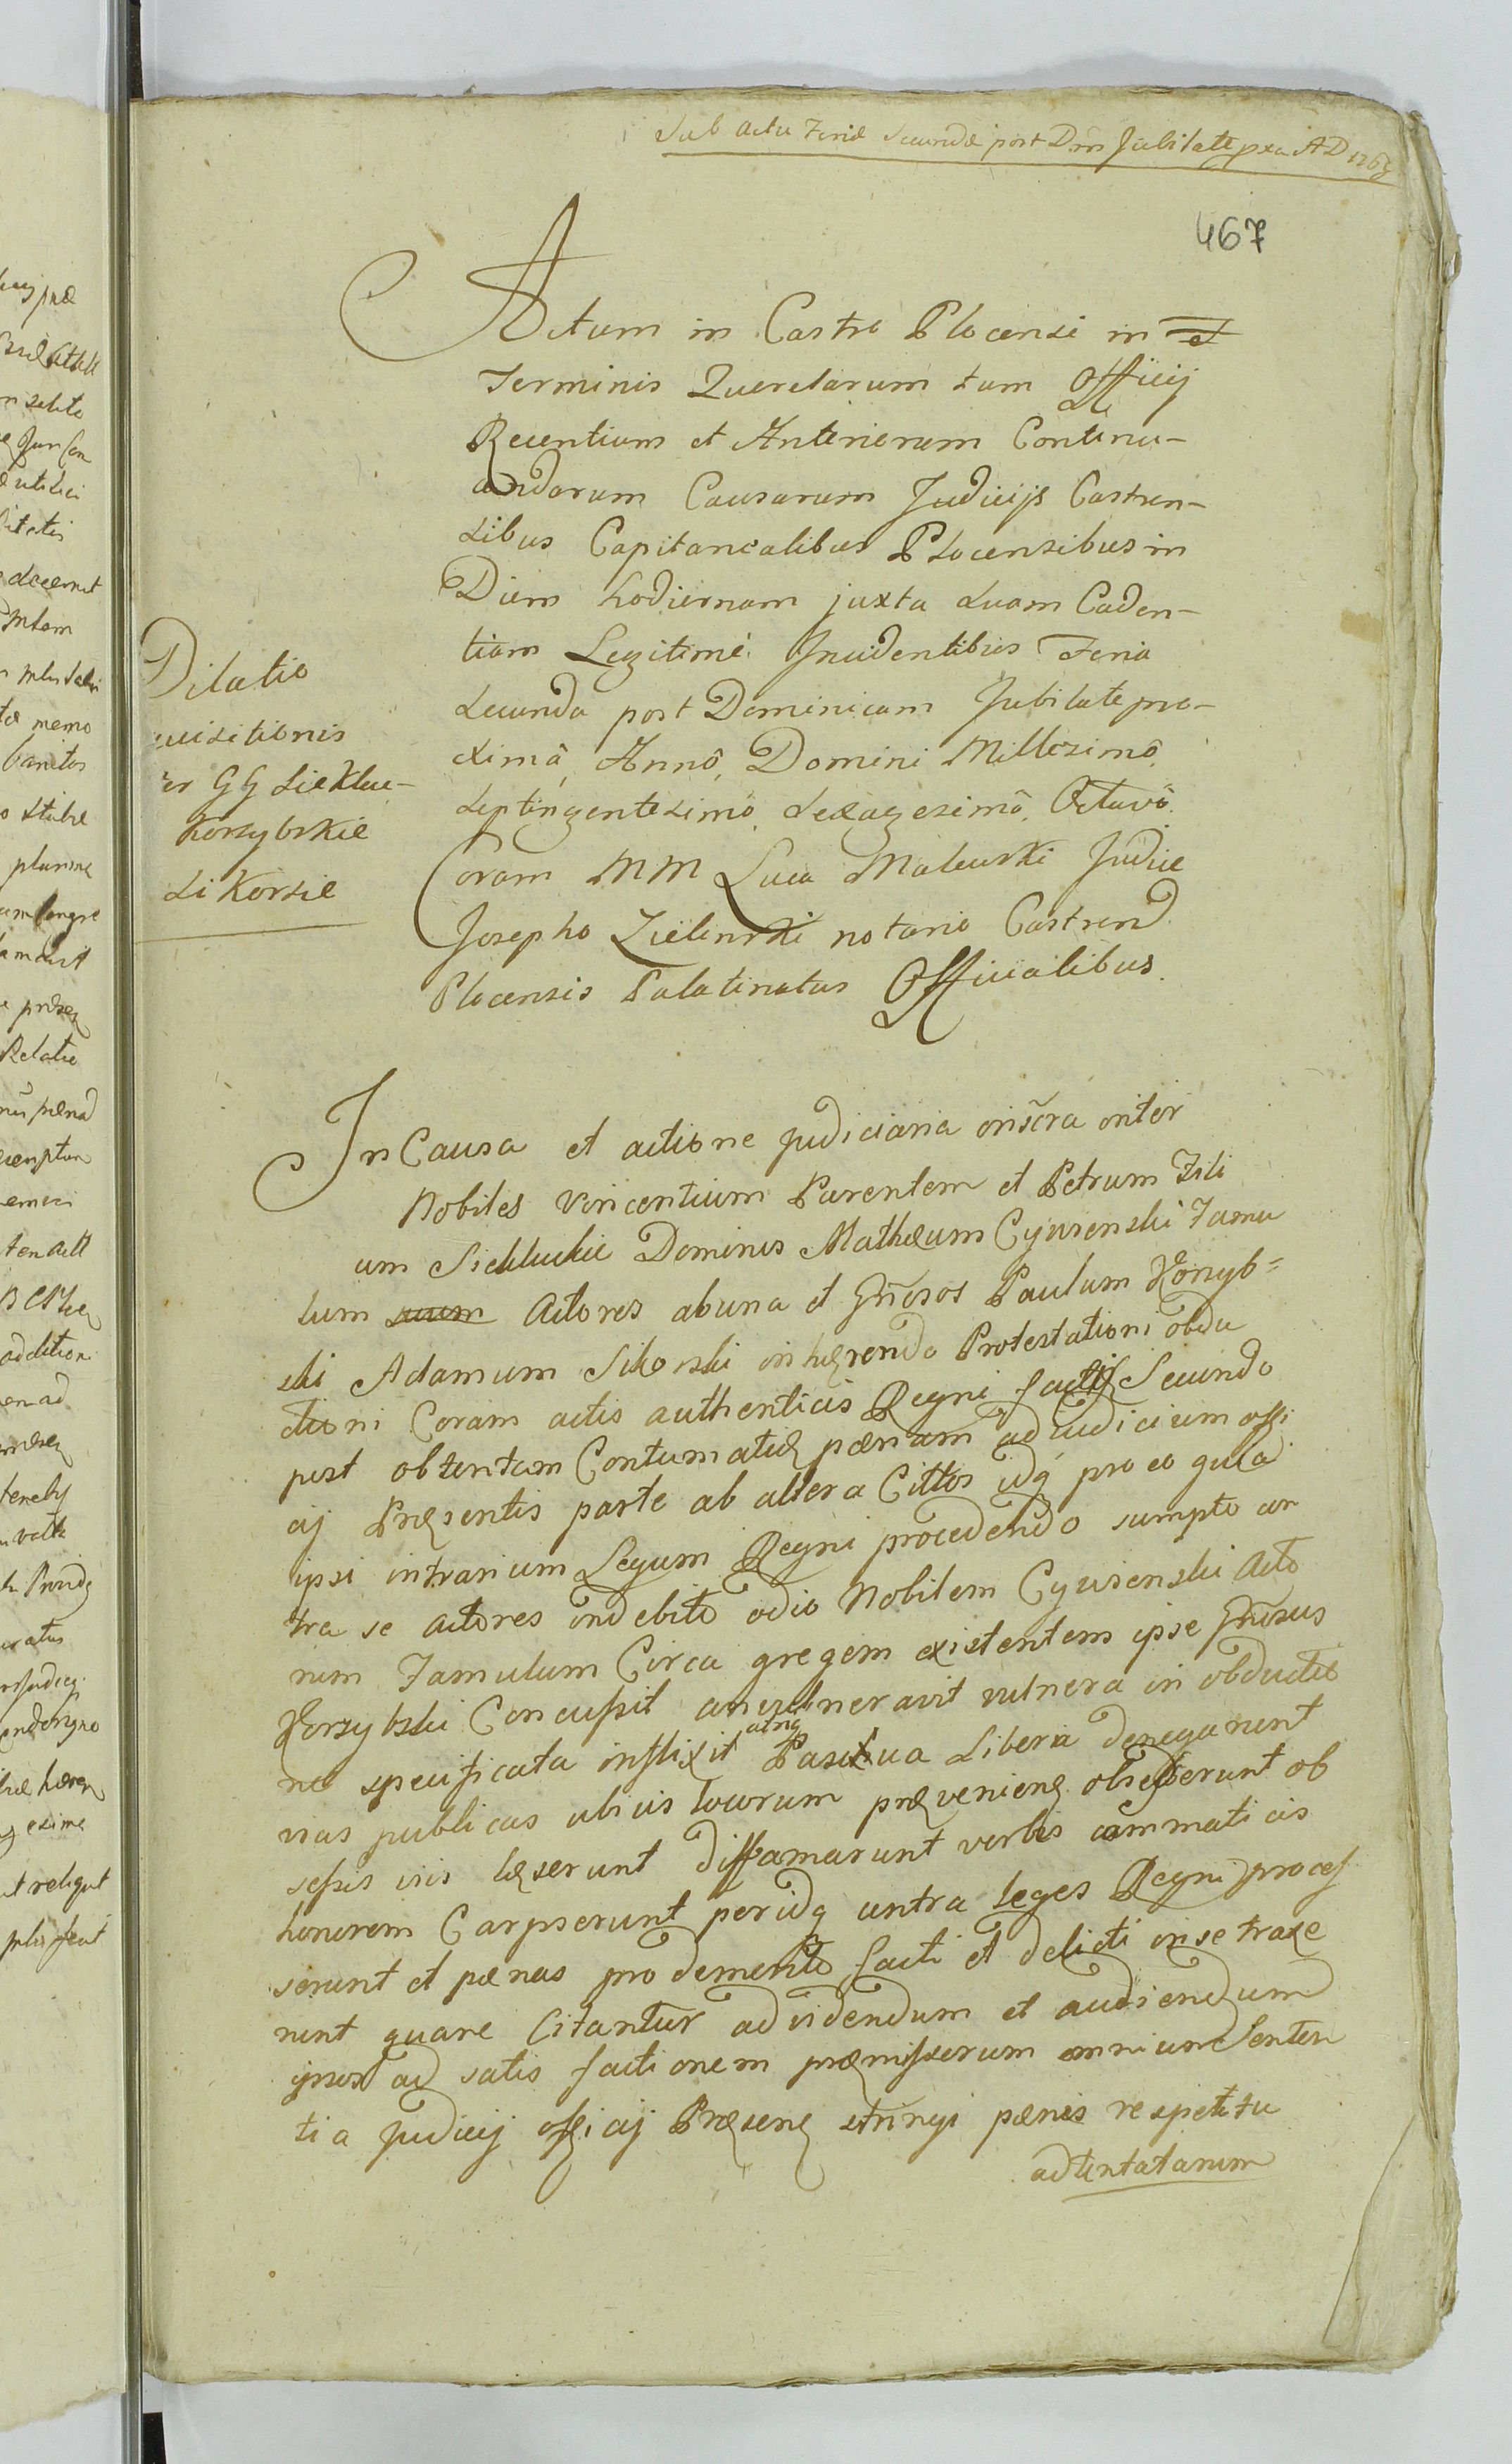 Sub Actu Feriæ Secundæ post Dnm Jubilate pxa AD 1768
467
Actum in Castro Plocensi in et
Terminis Querelarum tam Officij
Recentium et Anteriorum Continu-
andarum Causarum Judicijs Castren-
sibus Capitanealibus Plocensibus in
Diem hodiernam juxta suam Caden-
tiam Legitimé Incidentibus Feria
Secunda post Dominicam Jubilate pro-
ximâ, Annô, Domini Millesimô
Septingentesimô Sexagesimô, Octavô.
Coram MM Luca Malewski Judice
Josepho Zielinski notario Castren
Plocensis Palatinatus Officialibus.
Dilatio
uisitionis
er GG Sieklu-
Korzybskie
Sikorsie
In Causa et actione Judiciaria oriscra inter
Nobiles Vincentium Parentem et Petrum Fili
um Siekluckie Dominos Mathæum Cywinski Famu
lum suum Actores ab una et Gñosos Paulum Korzyb=
ski Adamum Sikorski inhærendo Protestationi obdu
ctioni Coram actis authenticis Regni factis Secundo
post obtentam Contumatiæ pænam ad Iudicium offi
cij Præsentis parte ab altera Cittos idq pro eo quia
ipsi intrarium Legum Regni procedendo sumpto con
tra se actores indebito odio Nobilem Cywinski Acto
rum Famulum Circa gregem existentem ipse Gñosus
Korzybski Concussit convulneravit vulnera in obductio
ne specificata inflixit atnq Pascua Libera denegarunt
vias publicas ubivis locorum prævenienę obsederunt ob
sessis viis læserunt diffamarunt verbis commaticis
honorem Carpserunt per idq contra leges Regni proces
serunt et pænas pro demerito facti et delicti in se traxe
runt quare Citantur ad videndum et audiendum
ipsos ad satis factionem præmissorum omnium Senten
tia Judicij officij Præsenę stringi pænis respectu
adtentatarum